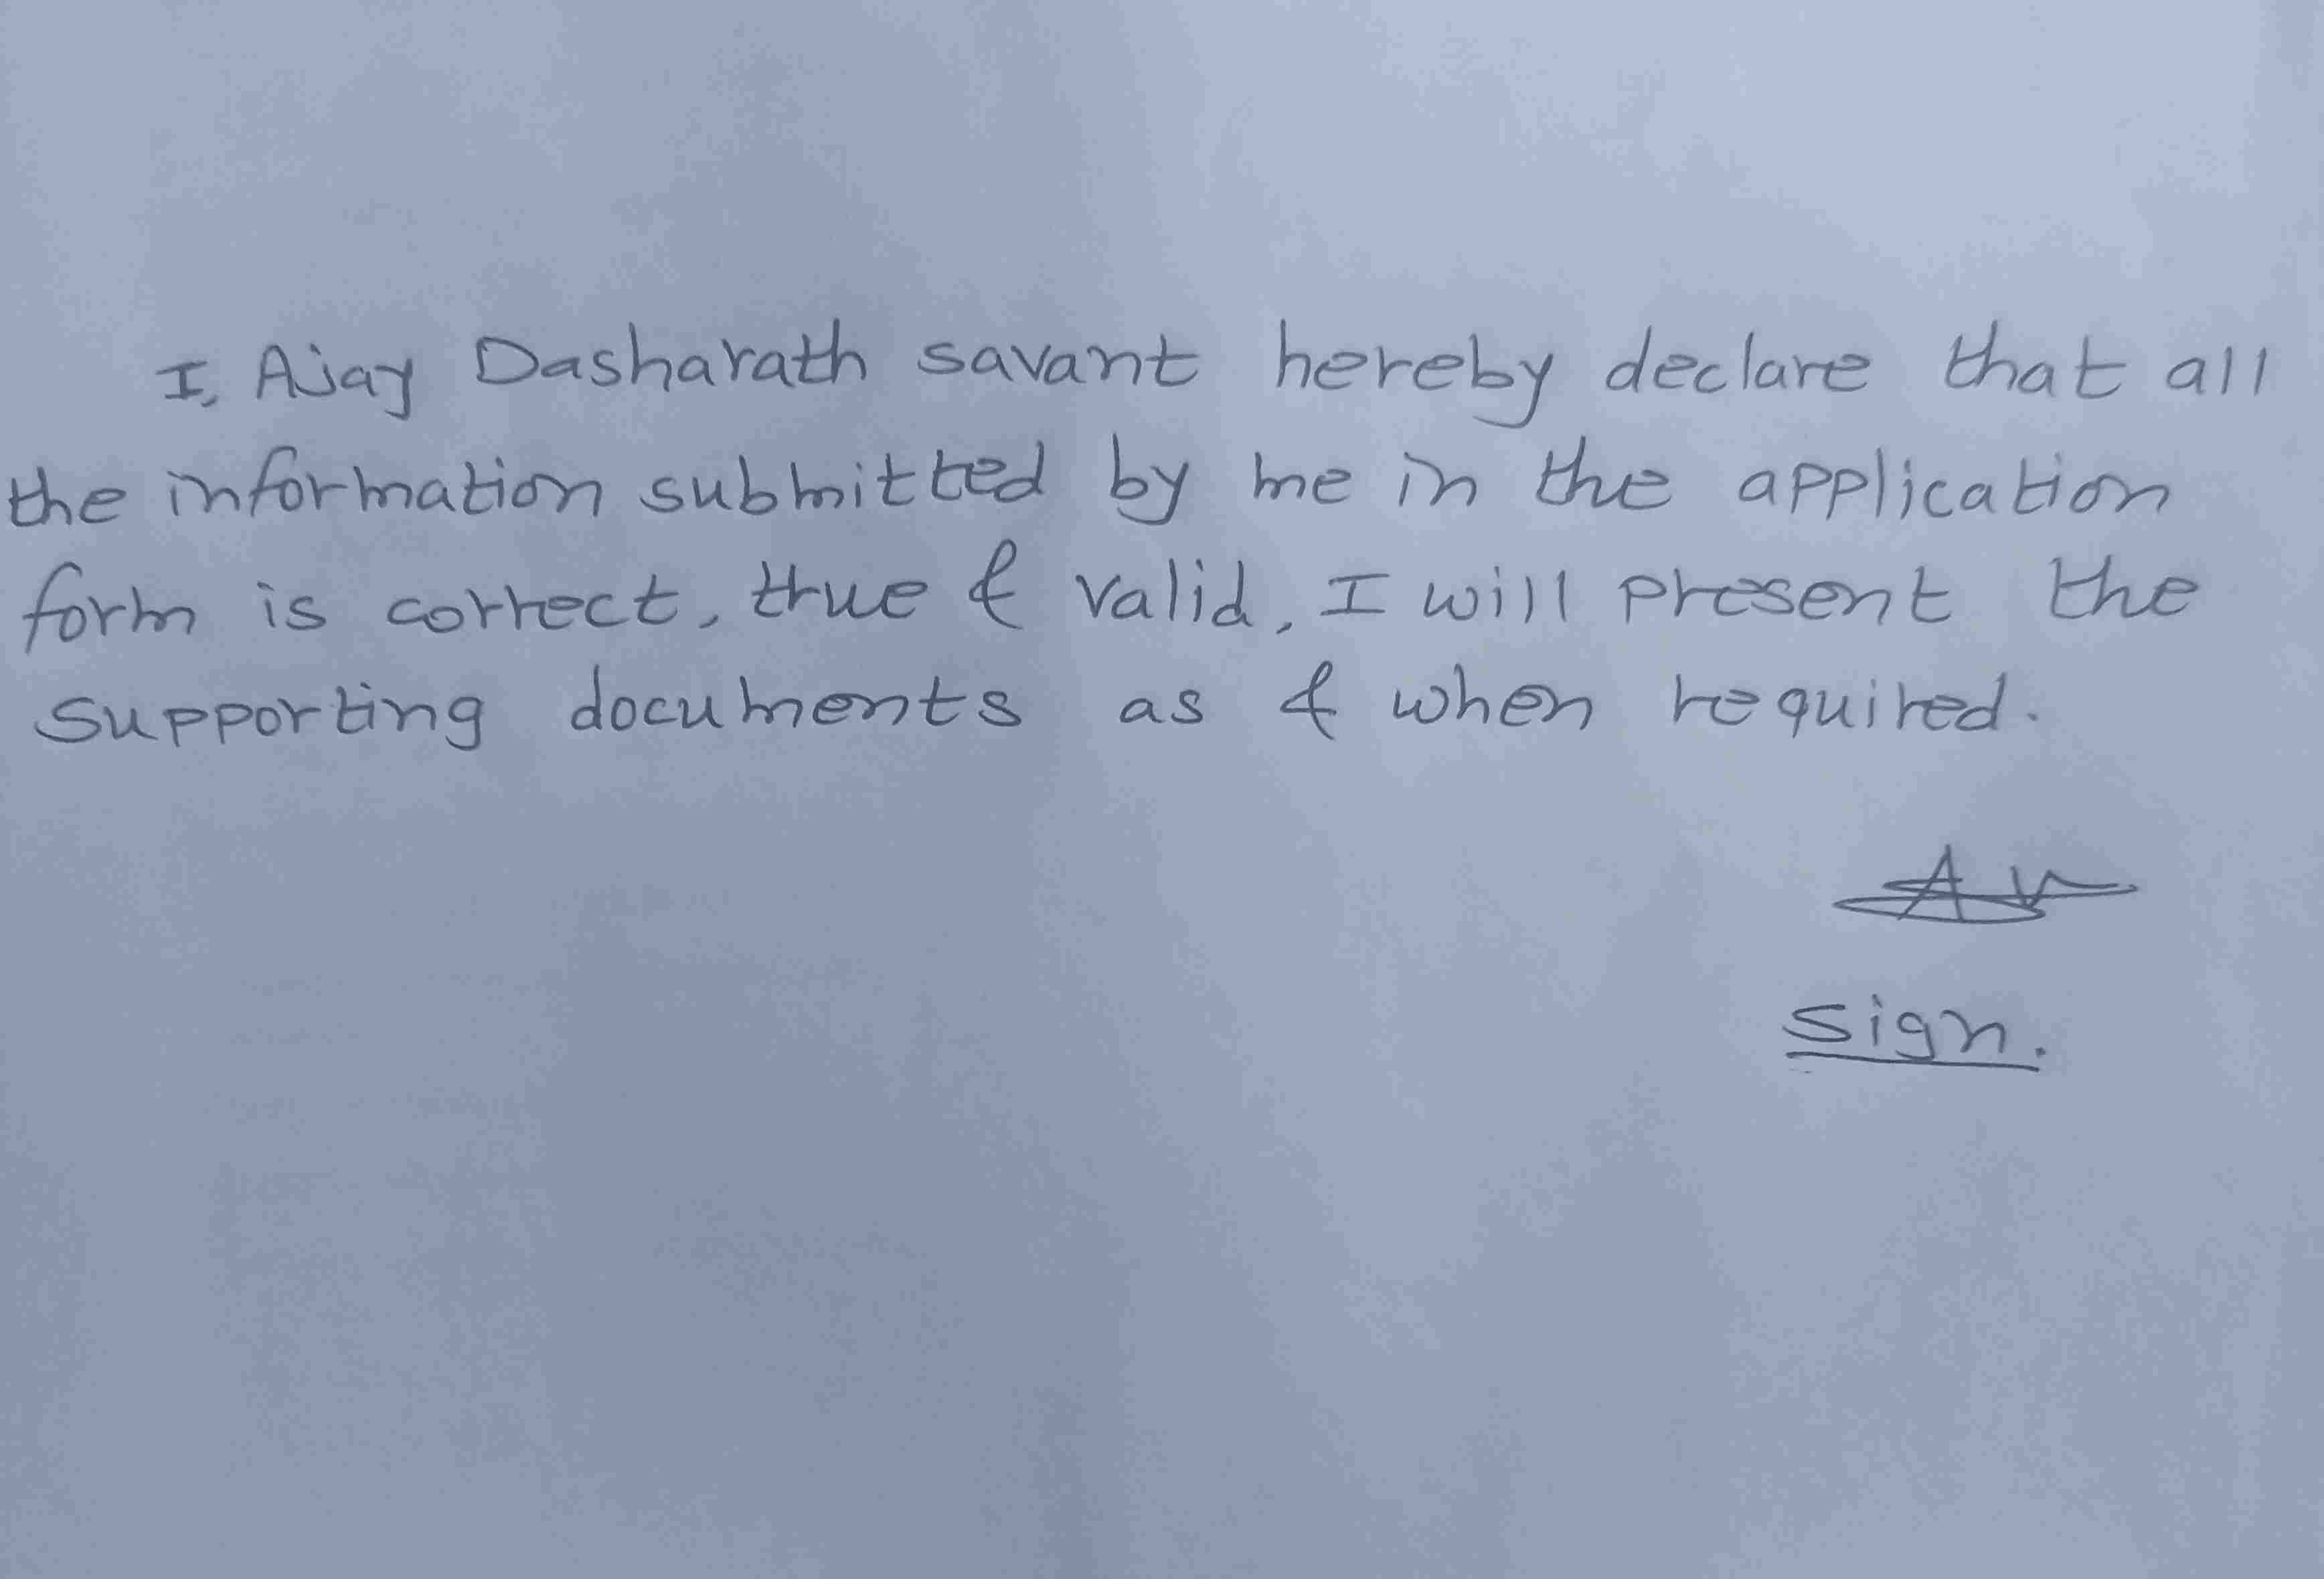 I, Ajay Dasharath savant hereby declare that all
the information submitted by me in the application
form is correct, true & valid, I will present the
supporting documents as & when required.
sign.